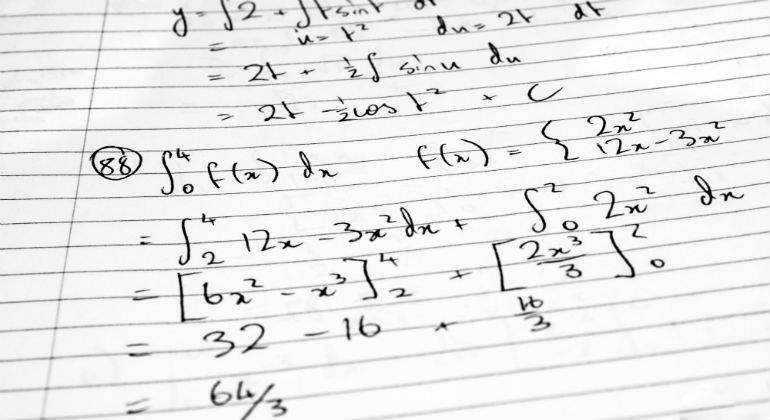 y = ∫2 + ∫t sin t²
= u = t² du = 2t dt
= 2t + ½∫ sin u du
= 2t - ½cos t² + C
88 ∫₀⁴ f(x) dx f(x) = { 2x²
12x - 3x²
= ∫₂⁴ 12x - 3x² dx + ∫₀² 2x² dx
= [6x² - x³]₂⁴ + [2x³/3]₀²
= 32 - 16 + 16/3
= 64/3